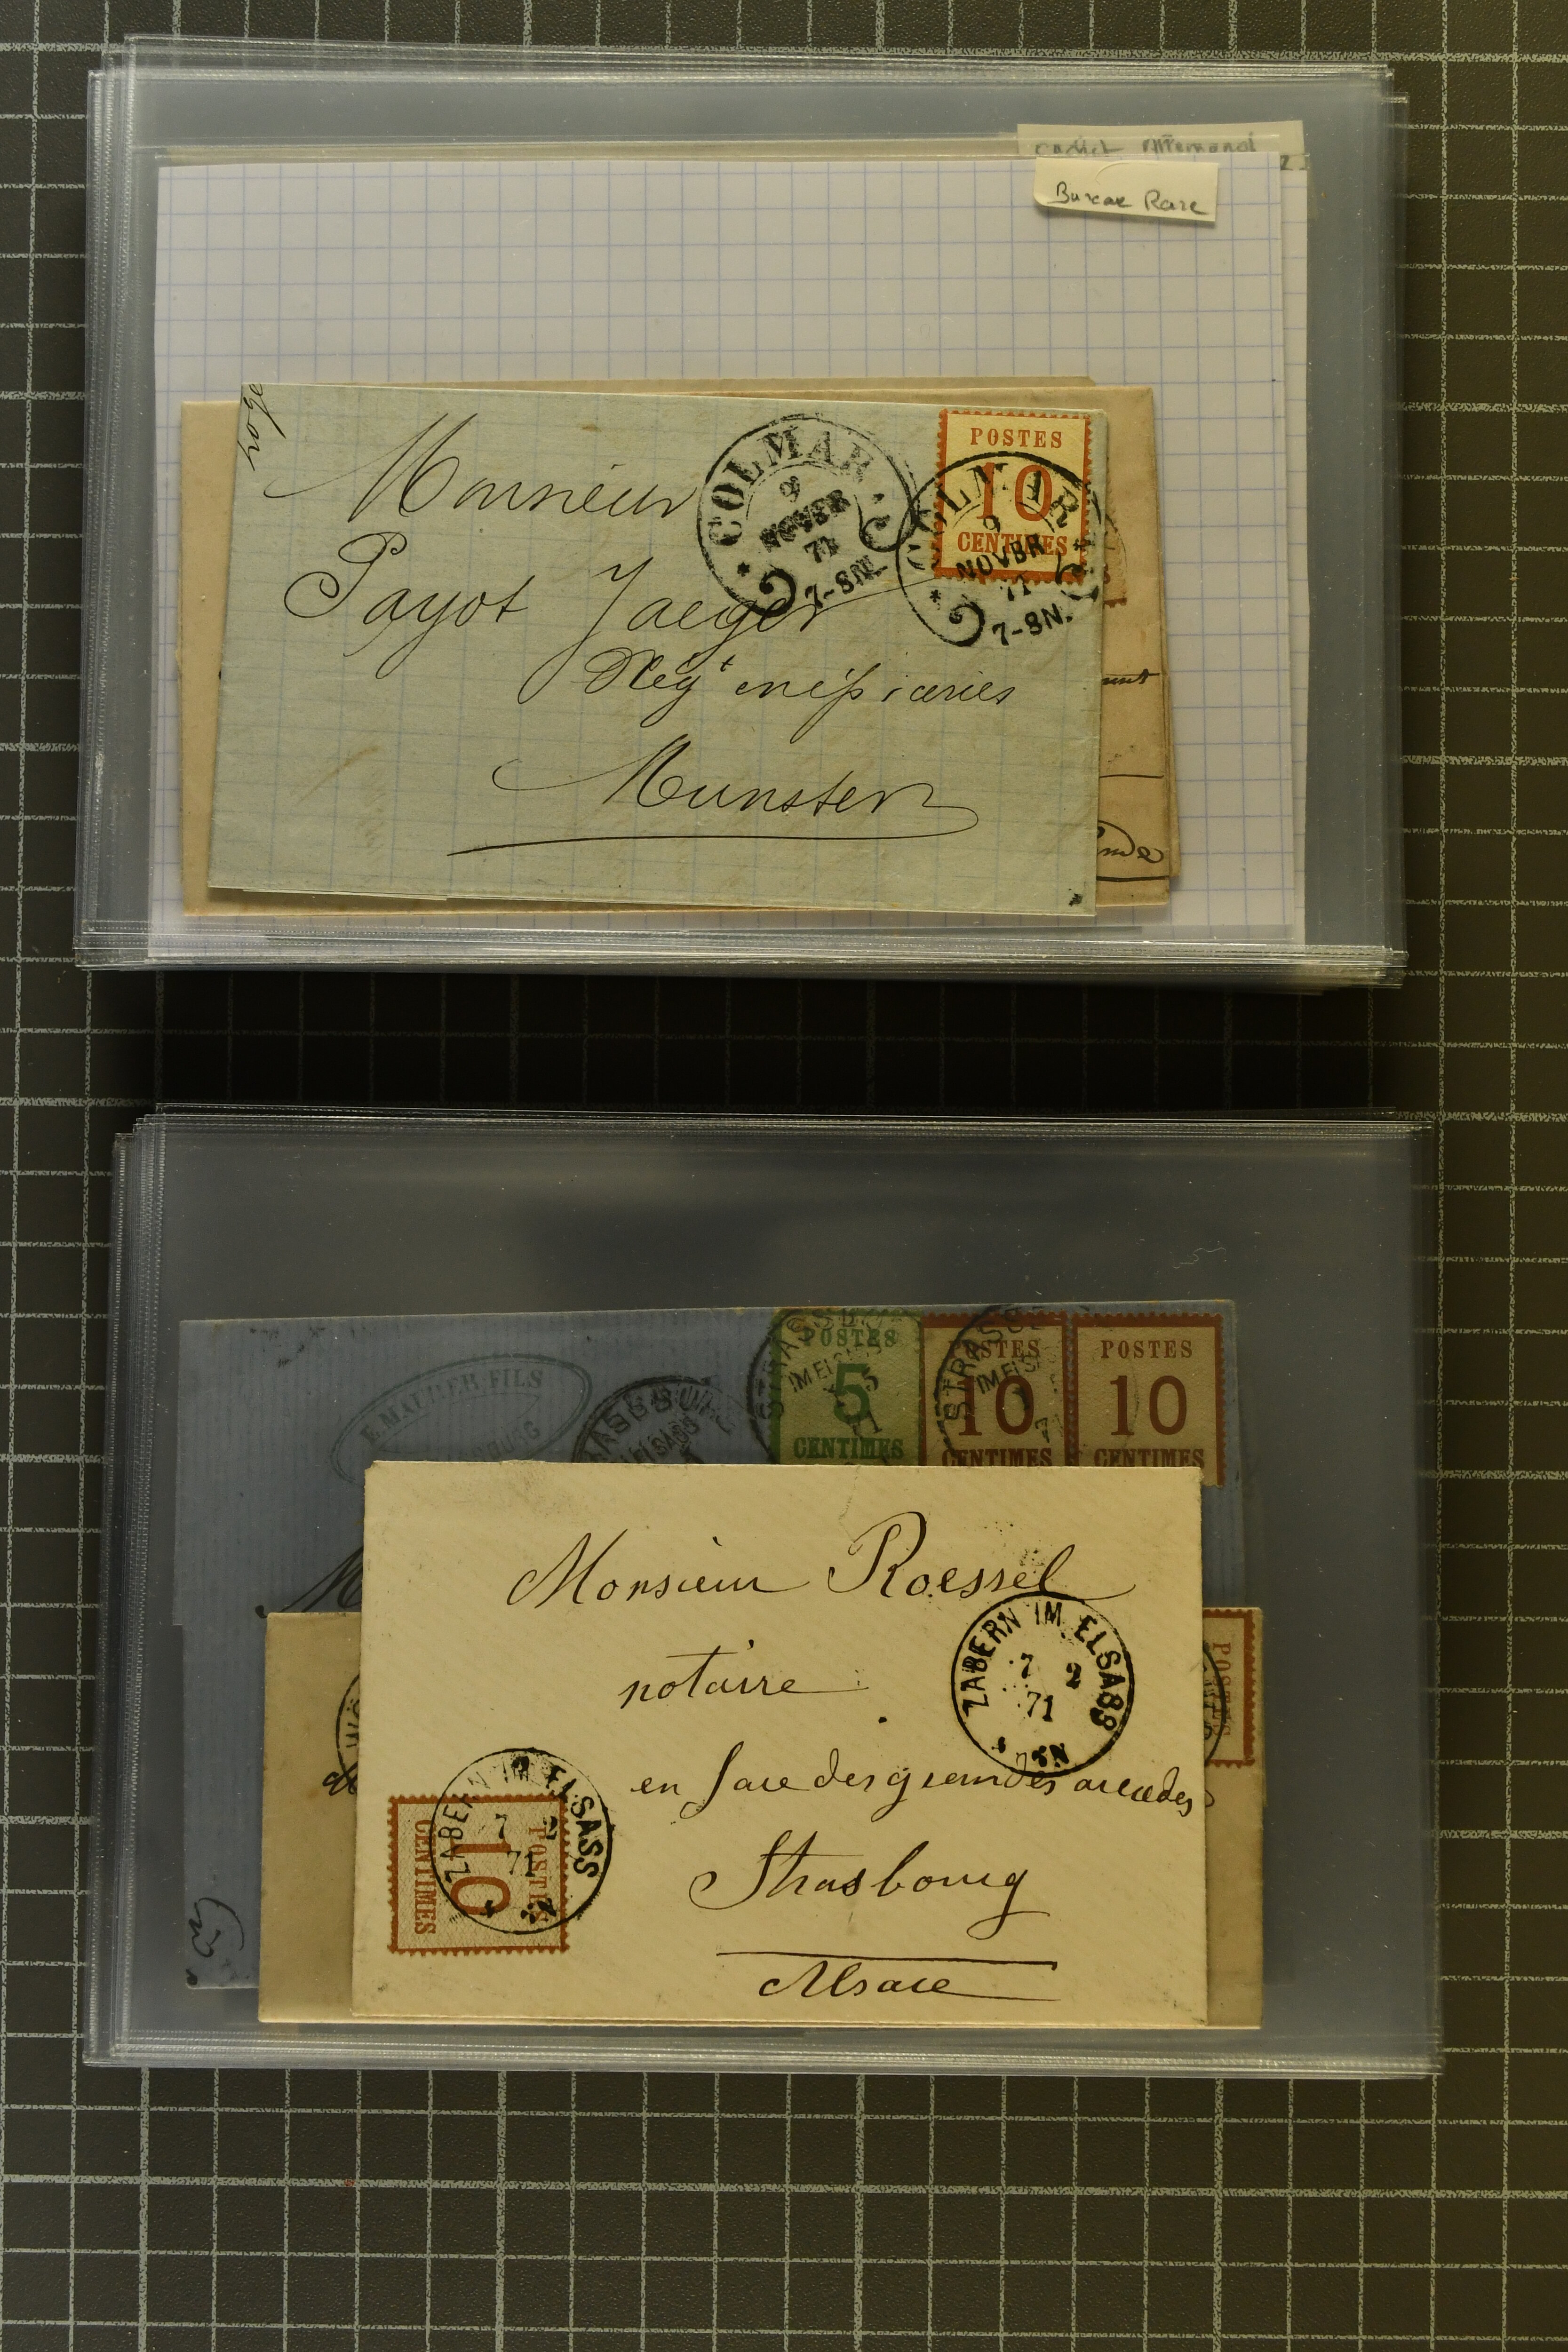 Bureau Rare
Monsieur
Payot Jaeger
Négt en épiceries
Munster
COLMAR
9
NOVBR
71
7-8N.
POSTES
10
CENTIMES
COLMAR
9
NOVBR
71
7-8N.
E. MAUDER FILS
STRASSBURG
IM ELSASS
POSTES
5
CENTIMES
POSTES
10
CENTIMES
POSTES
10
CENTIMES
Monsieur Roessel
notaire
en face des grandes arcades
Strasbourg
Alsace
ZABERN IM ELSASS
7 2
71
POSTES
10
CENTIMES
ZABERN IM ELSASS
7 2
71
POSTES